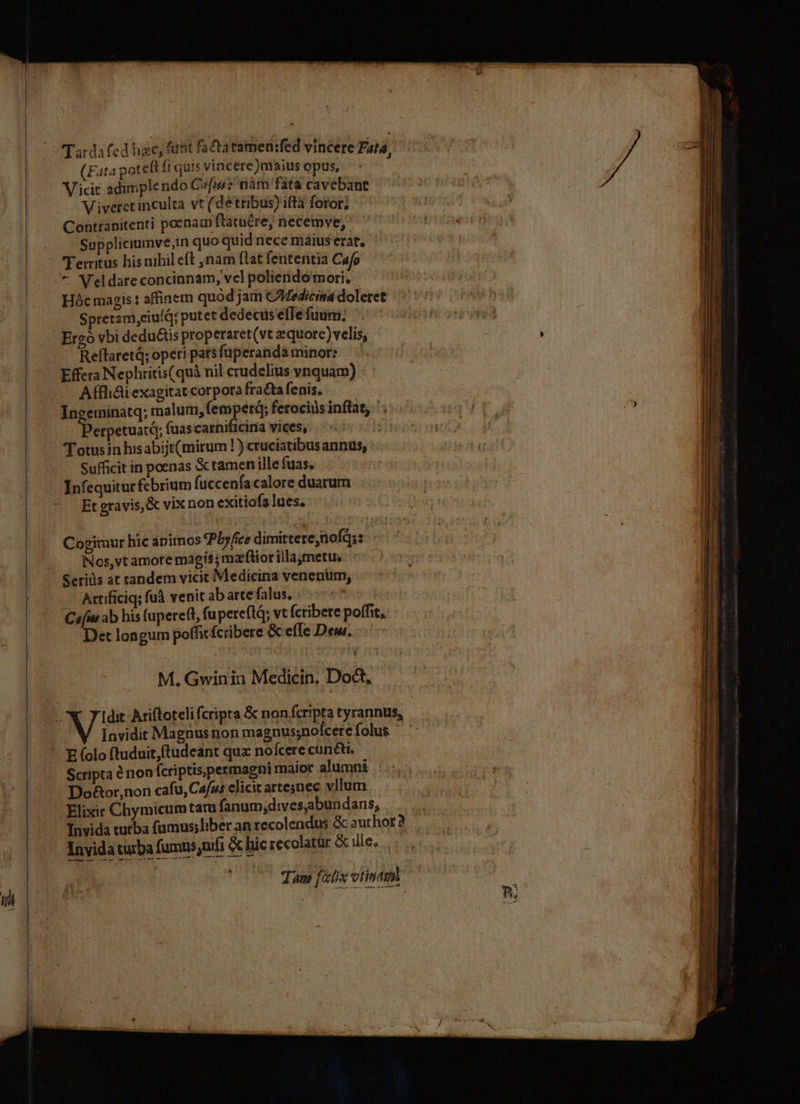 Tarda fed hæc, funt facta tamen:fed vincere Fata,
(Fata poteft fi quis vincere)maius opus,
Vicit adimplendo Cafus: nam fata cavebant
Viveret inculta vt (detribus) ifta foror;
Contranitenti pœnam ftatuêre, necemve,
Suppliciumve,in quo quid nece maius erat.
Territus his nihil eft ,nam ftat fententia Cafo
Vel dare concinnam, vel poliendo mori.
Hôc magis: affinem quòd jam Medicina doleret
Spretam,eiufq́; putet dedecus effe fuum;
Ergò vbi deductis properaret(vt æquore)velis,
Reftaretq́; operi pars fuperanda minor:
Effera Nephritis(quâ nil crudelius vnquam)
Afflicti exagitat corpora fracta fenis.
Ingeminatq; malum, femperq́; ferociùs inftat,
Perpetuatq́; fuas carnificina vices,
Totus in his abijt(mirum!) cruciatibus annus,
Sufficit in pœnas & tamen ille fuas.
Infequitur febrium fuccenfa calore duarum
Et gravis,& vix non exitiofa lues.
Cogimur hîc animos Phyfice dimittere,nofq́;:
Nos,vt amore magis; mæftior illa;metu.
Seriùs at tandem vicit Medicina venenùm,
Artificiq; fuâ venit ab arte falus.
Cafus ab his fupereft, fupereftq́; vt fcribere poffit,
Det longum poffit fcribere & effe Deus.
M. Gwin in Medicin. Doct.
VIdit Ariftoteli fcripta & non fcripta tyrannus,
Invidit Magnus non magnus;nofcere folus
E folo ftuduit,ftudeant quæ nofcere cuncti.
Scripta è non fcriptis,permagni maior alumni
Doctor,non cafu,Cafus elicit arte;nec vllum
Elixir Chymicum tam fanum,dives,abundans,
Invida turba fumus;liber an recolendus & author?
Invida turba fumus,nifi & hic recolatur & ille.
Tam fælix vtinam!
B;